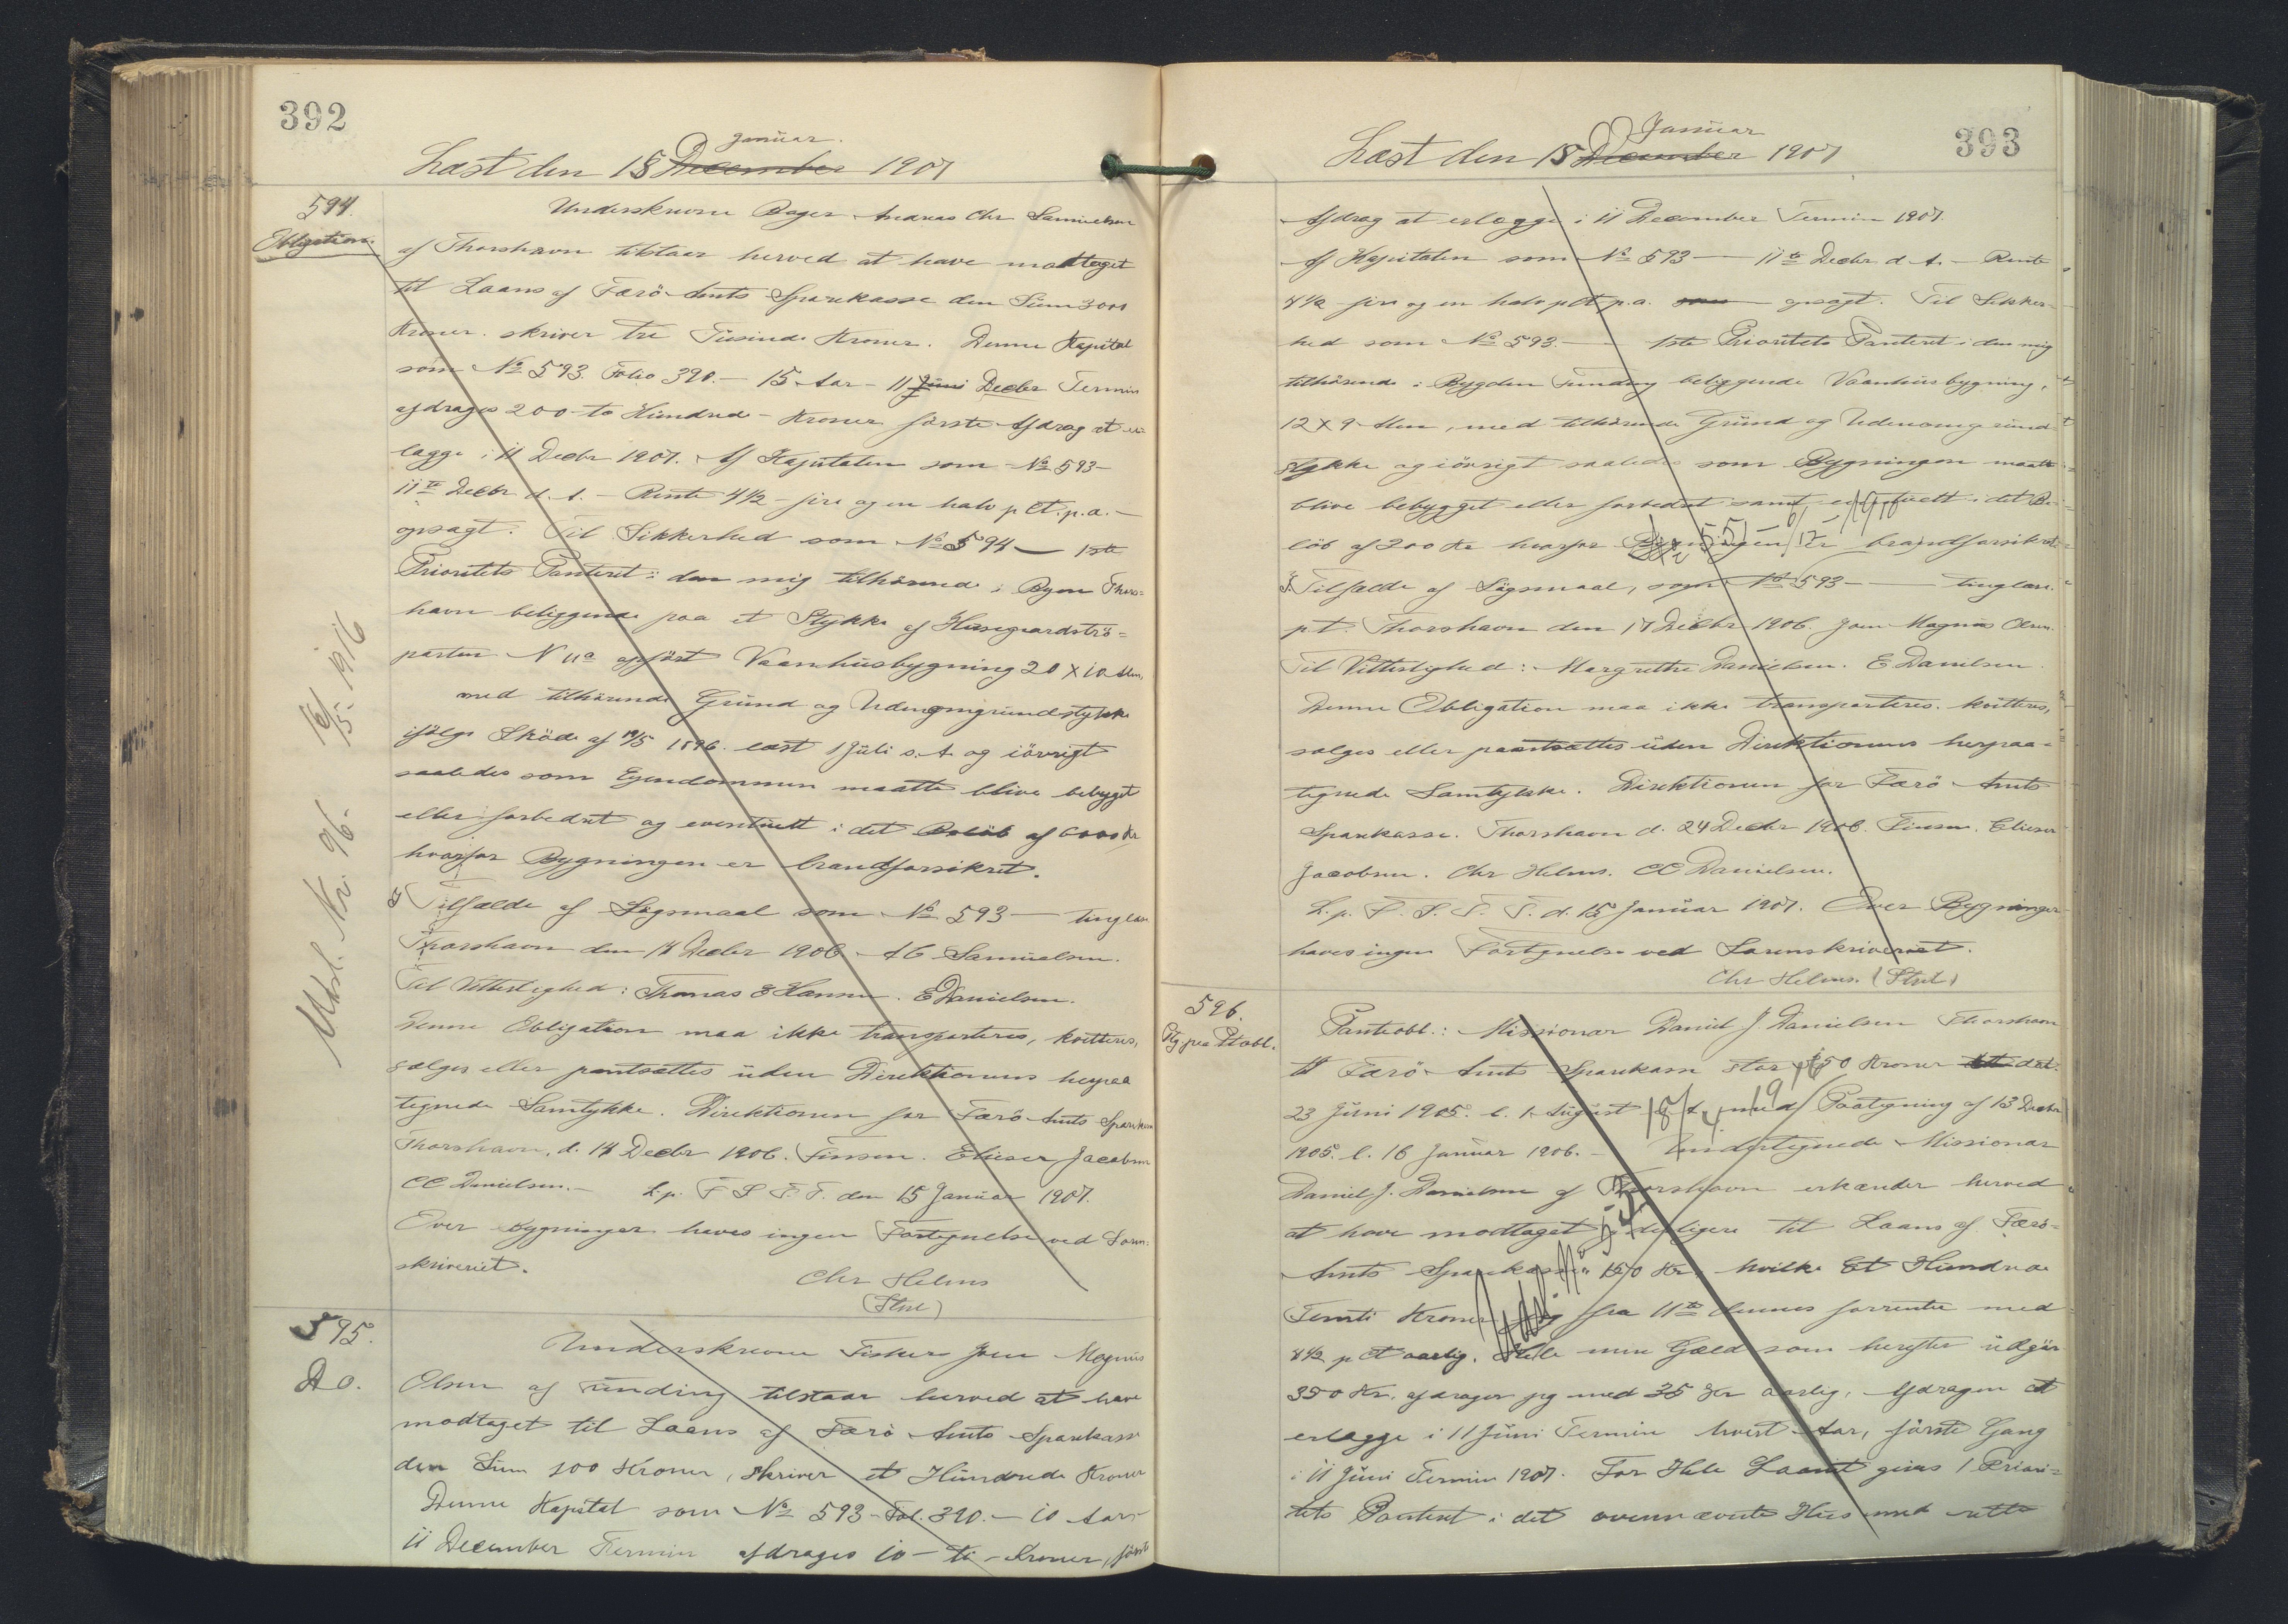 392
Januar.
Læst den 15 December 1907
594.
Obligation.
Underskrevne Bager Andreas Chr Samuelsen
af Thorshavn tilstaar herved at have modtaget
til Laans af Færö Amts Sparekasse den Sum 3000
Kroner. skriver tre Tusinde Kroner. Denne Kapital
som No 593. Folio 390. - 15 Aar - 11 Juni Decbr Termin
afdrages 200 - to Hundrede - Kroner förste Afdrag at er-
lægge i 11 Decbr 1907. Af Kapitalen som No 593 -
11te Decbr d. A. - Rente 4 1/2 - fire og en halv p Ct. p. a. -
opsagt. Til Sikkerhed som No 594 - 1ste
Prioritets Panteret i den mig tilhörende i Byen Thors=
havn beliggende paa et Stykke af Husegaardströ=
parten N 11a opfört Vaanhusbygning 20 x 10 Alen,
med tilhörende Grund og Udenomgrundstykke
ifölge Sköde af 19/5 1896. læst 1 Juli s. A og iövrigt
saaledes som Ejendommen maatte blive bebygget
eller forbedret og eventuelt i det Belöb af 6000 Kr
hvorfor Bygningen er brandforsikret.
I Tilfælde af Sögsmaal som No 593 - tinglæse
Thorshavn den 14 Decbr 1906 A C Samuelsen.
Til Vitterlighed: Thomas E Hansen. E Danielsen.
Denne Obligation maa ikke transporteres, kvitteres,
sælges eller pantsættes uden Direktionens herpaa
tegnede Samtykke. Direktionen for Færö Amts Sparekasse
Thorshavn, d. 14 Decbr 1906. Finsen. Elieser Jacobsen
CC Danielsen. - L. p. F S F. T. den 15 Januar 1907.
Over Bygninger haves ingen Fortegnelse ved Soren-
skriveriet.
Chr Helms
(Str)
Udsl. Nr. 96. 16/5 - 1916
595.
Do.
Underskrevne Fisker Joen Magnus
Olsen af Funding tilstaar herved at have
modtaget til Laans af Færö Amts Sparekasse
den Sum 100 Kroner, skriver et Hundrede Kroner
Denne Kapital som No 593 - Fol. 390. - 10 Aar -
11 December Termin afdrages 10 - ti - Kroner, förste
393
Januar
Læst den 15 December 1907
Afdrag at erlægge i 11 December Termin 1907.
Af Kapitalen som No 593 - 11te Decbr d. A. - Rente
4 1/2 fire og en halv p Ct p. a. opsagt. Til Sikker-
hed som No 593. - 1ste Prioritets Panteret i den mig
tilhörende i Bygden Funding beliggende Vaanhusbygning,
12 x 9 Alen, med tilhörende Grund og Udenomgrund-
stykke og iövrigt saaledes som Bygningen maatte
blive bebygget eller forbedret samt eventuelt i det Be-
löb af 200 Kr hvorfor Bygningen er brandforsikret
I Tilfælde af Sögsmaal, som No 593 - tinglæse.
p t. Thorshavn den 17 Decbr 1906. Joen Magnus Olsen.
Til Vitterlighed: Margrethe Danielsen. E Danielsen.
Denne Obligation maa ikke transporteres. kvitteres,
sælges eller pantsættes uden Direktionens herpaa-
tegnede Samtykke. Direktionen for Færö Amts
Sparekasse. Thorshavn d. 24 Decbr 1906. Finsen. Elieser
Jacobsen. Chr Helms. CC Danielsen.
L. p. F. S. F. T. d. 15 Januar 1907. Over Bygninger
haves ingen Fortegnelse ved Sorenskriveriet.
Chr Helms. (Str)
596.
Ptg paa Ptobl.
Panteobl.: Missionær Daniel J. Danielsen Thorshavn
til Færö Amts Sparekasse stor 250 Kroner dat.
23 Juni 1905. l. 1 August s. A. med Paategning af 13 Decbr
1905. l. 16 Januar 1906. - Undertegnede Missionær
Daniel J. Danielsen af Thorshavn erkænder herved
at have modtaget yderligere til Laans af Færö-
Amts Sparekasse 150 Kr. hvilke Et Hundrede
Femti Kroner jeg fra 11te dennes forrenter med
4 1/2 p Ct aarlig. Hele min Gæld som herefter udgör
350 Kr. afdrager jeg med 35 Kr aarlig, Afdragen at
erlægge i 11 Juni Termin hvert Aar, förste Gang
i 11 Juni Termin 1907. For Hele Laanet gives 1 Priori=
tets Panteret i det ovennævnte Hus med rette